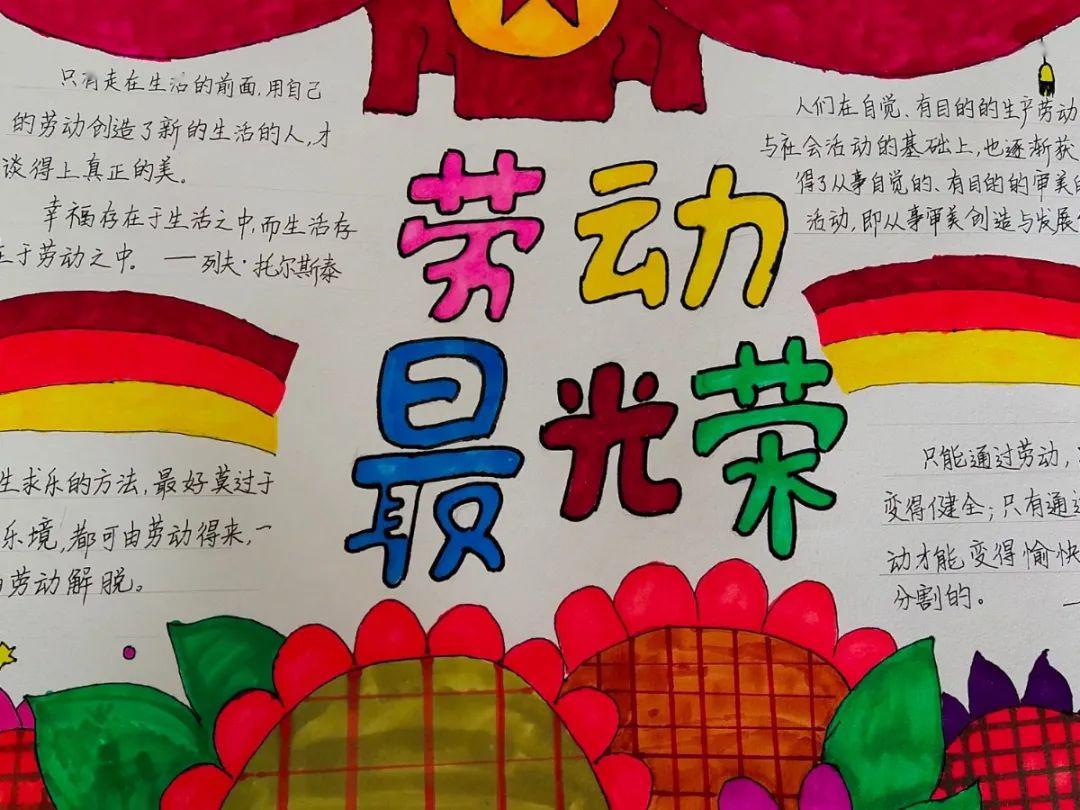 只有走在生活的前面,用自己
的劳动创造了新的生活的人,才
谈得上真正的美。
幸福存在于生活之中,而生活存
于劳动之中。 —列夫·托尔斯泰
劳动
最光荣
人们在自觉、有目的的生产劳动
与社会活动的基础上,也逐渐获
得了从事自觉的、有目的的审美的
活动,即从事审美创造与发展
生求乐的方法,最好莫过于
乐境,都可由劳动得来,一
劳动解脱。
只能通过劳动,
变得健全;只有通过
动才能变得愉快
分割的。